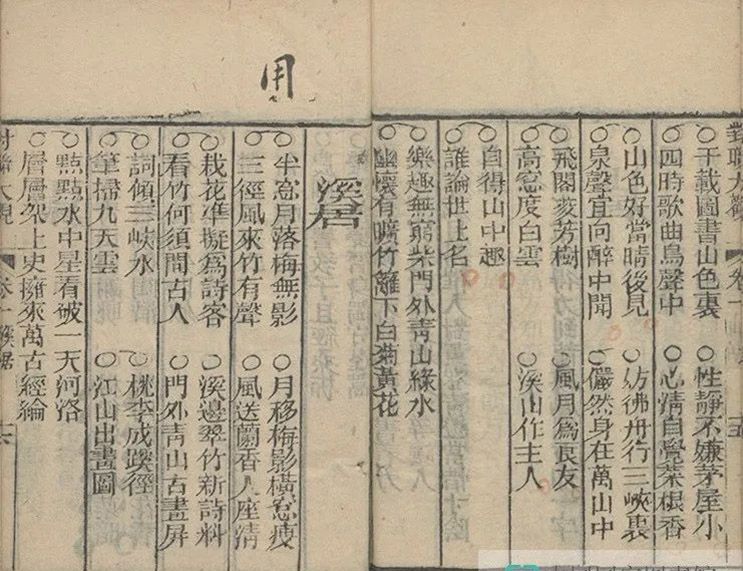 用
對聯大觀 卷一
○千載圖書山色裏 ○性靜不嫌茅屋小
○四時歌曲鳥聲中 ○心清自覺菜根香
○山色好當晴後見 ○彷彿舟行三峽裏
○泉聲宜向醉中聞 ○儼然身在萬山中
○飛閣夌芳樹 ○風月為良友
○高窓度白雲 ○溪山作主人
○自得山中趣
○誰論世上名
○樂趣無窮柴門外靑山綠水
○幽懷有曠竹籬下白菊黃花
溪居
○半窓月落梅無影 ○月移梅影橫窓瘦
○三徑風來竹有聲 ○風送蘭香入座清
○栽花準擬爲詩客 ○溪邊翠竹新詩料
○看竹何須問古人 ○門外靑山古畫屏
○詞傾三峽水 ○桃李成蹊徑
○筆掃九天雲 ○江山出畫圖
○點點水中星看破一天河洛
○層層架上史擁來萬古經綸
對聯大觀 卷一 溪居